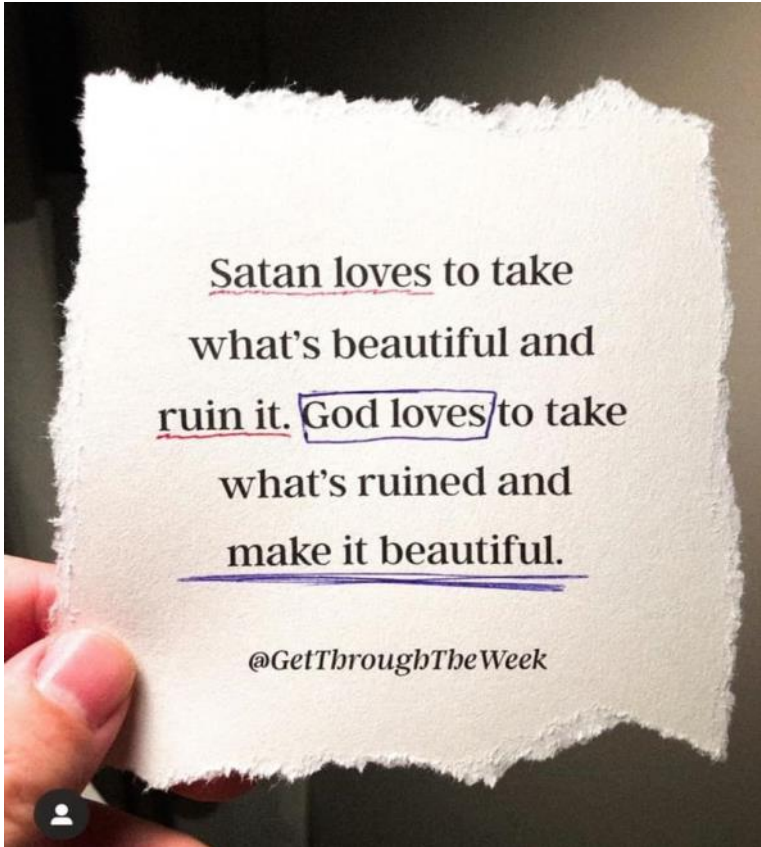 Satan loves to take
what’s beautiful and
ruin it. God loves to take
what’s ruined and
make it beautiful.
@GetThroughTheWeek